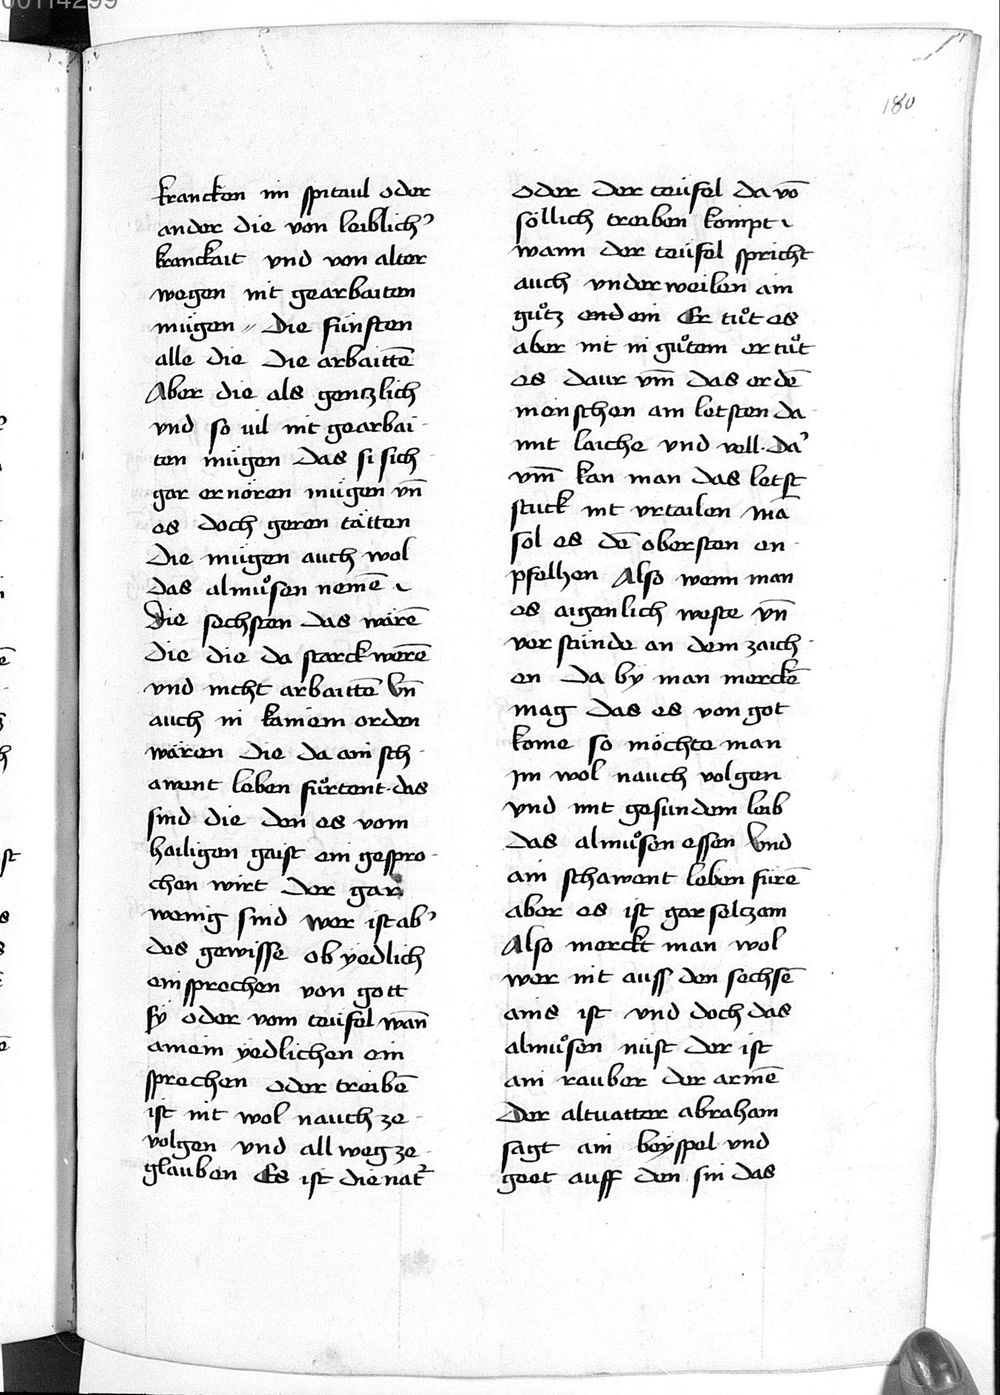 00114299
180
krancken im spitaul oder
ander die von leiblichʼ
kranckait vnd von alter
wegen nit gearbaiten
mügen〃 Die fünften
alle die Die arbaittē
Aber die als gentzlich
vnd so uil nit gearbai-
ten mügen das si sich
gar ernören mügen vn̄
es doch geren tätten
Die mügen auch wol
das almůsen nemē
Die sechsten das wärē
die die da starck werē
vnd nicht arbaittē Vn̄
auch in kainem orden
wären Die da ain sch-
awent leben fůrtent· das
sind die den es vom
hailigen gaist ein gespro-
chen wirt Der gar
wenig sind wer ist abʼ
des gewisse ob yedlich
einsprechen von gott
sy oder vom teüfel wan̄
ainem yedlichen ein
sprechen oder treibē
ist nit wol nauch ze-
volgen vnd allweg ze-
glauben Es ist die natʼ
oder der teüfel da vō
söllich treiben kompt
wann der teüfel spricht
auch vnderweilen ain
gůtz end ein Er tůt es
aber nit in gůtem er tůt
es daur vm̄ das er dē
menschen am letsten da-
mit laiche vnd vell· Daʼ
vm̄ kan man das letst
stuck nit vrtailen mā
sol es dē obersten en-
pfelhen Also wenn man
es aigenlich weste vn̄
verstünde an dem zaich-
en Da by man merckē
mag das es von got
kome so möchte man
im wol nauch volgen
vnd mit gesundem leib
das almůsen essen Vnd
ain schawent leben fürē
aber es ist gar seltzam
Also merckt man wol
wer nit auss den sechsē
ains ist vnd doch das
almůsen nüst der ist
ain rauber der armē
Der altuatter abraham
sagt ain beyspel vnd
geet auff den sin das